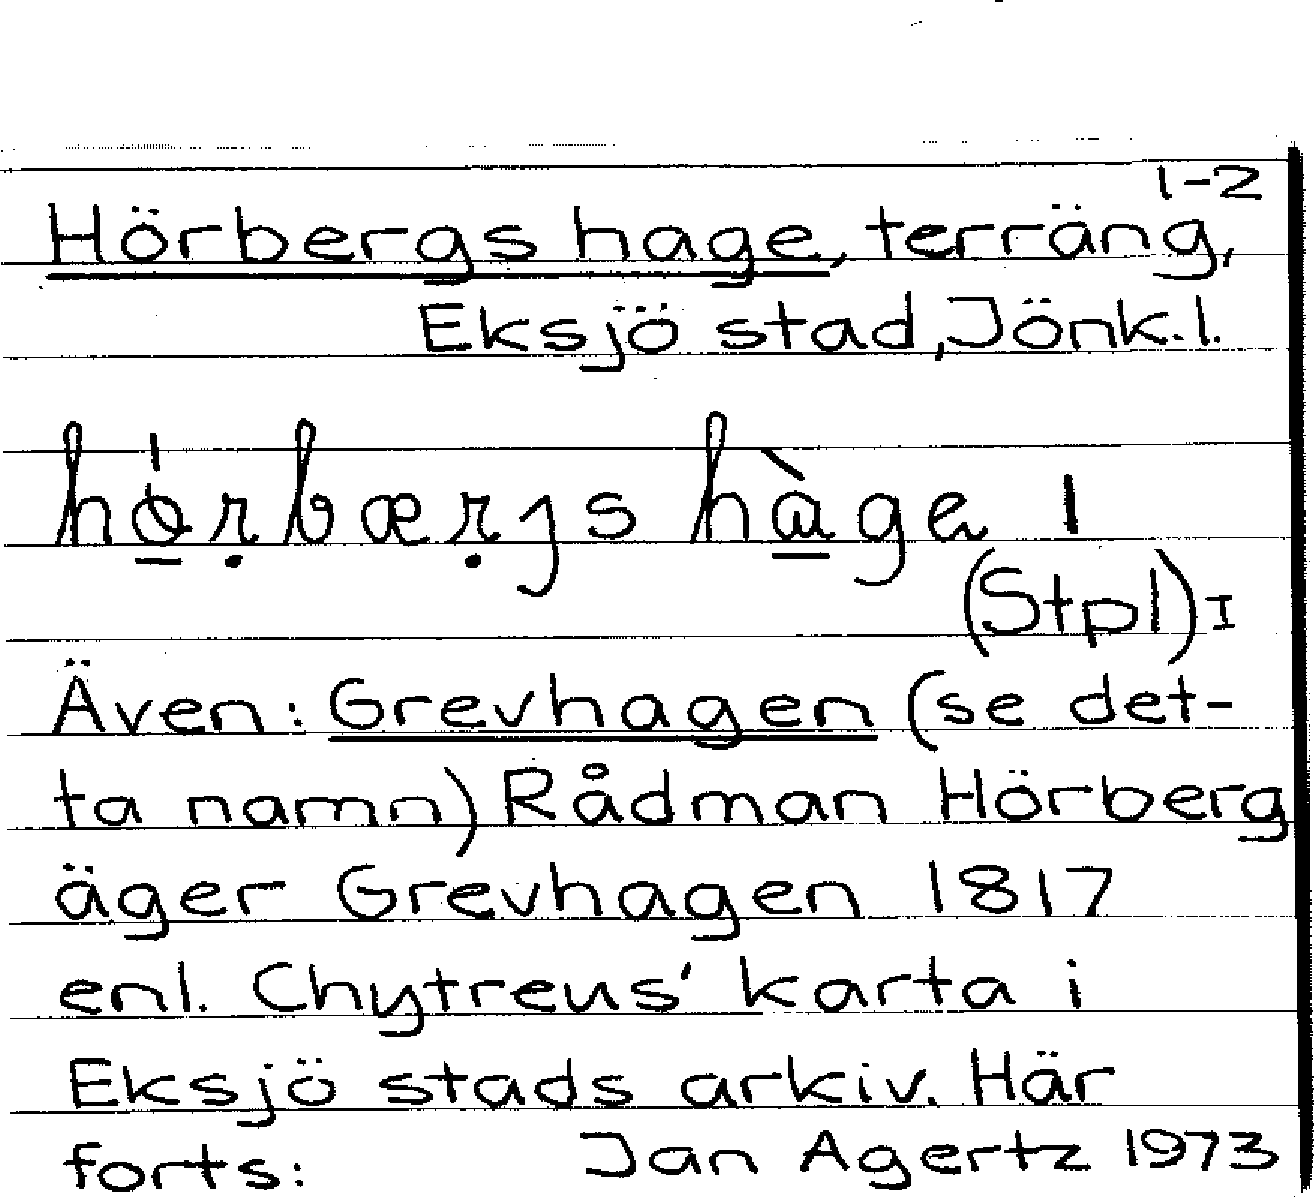 1-2
Hörbergs hage, terräng,
Eksjö stad, Jönk.l.
(Stpl) I
Även: Grevhagen (se det-
ta namn) Rådman Hörberg
äger Grevhagen 1817
enl. Chytreus' karta i
Eksjö stads arkiv. Här
forts: Jan Agertz 1973